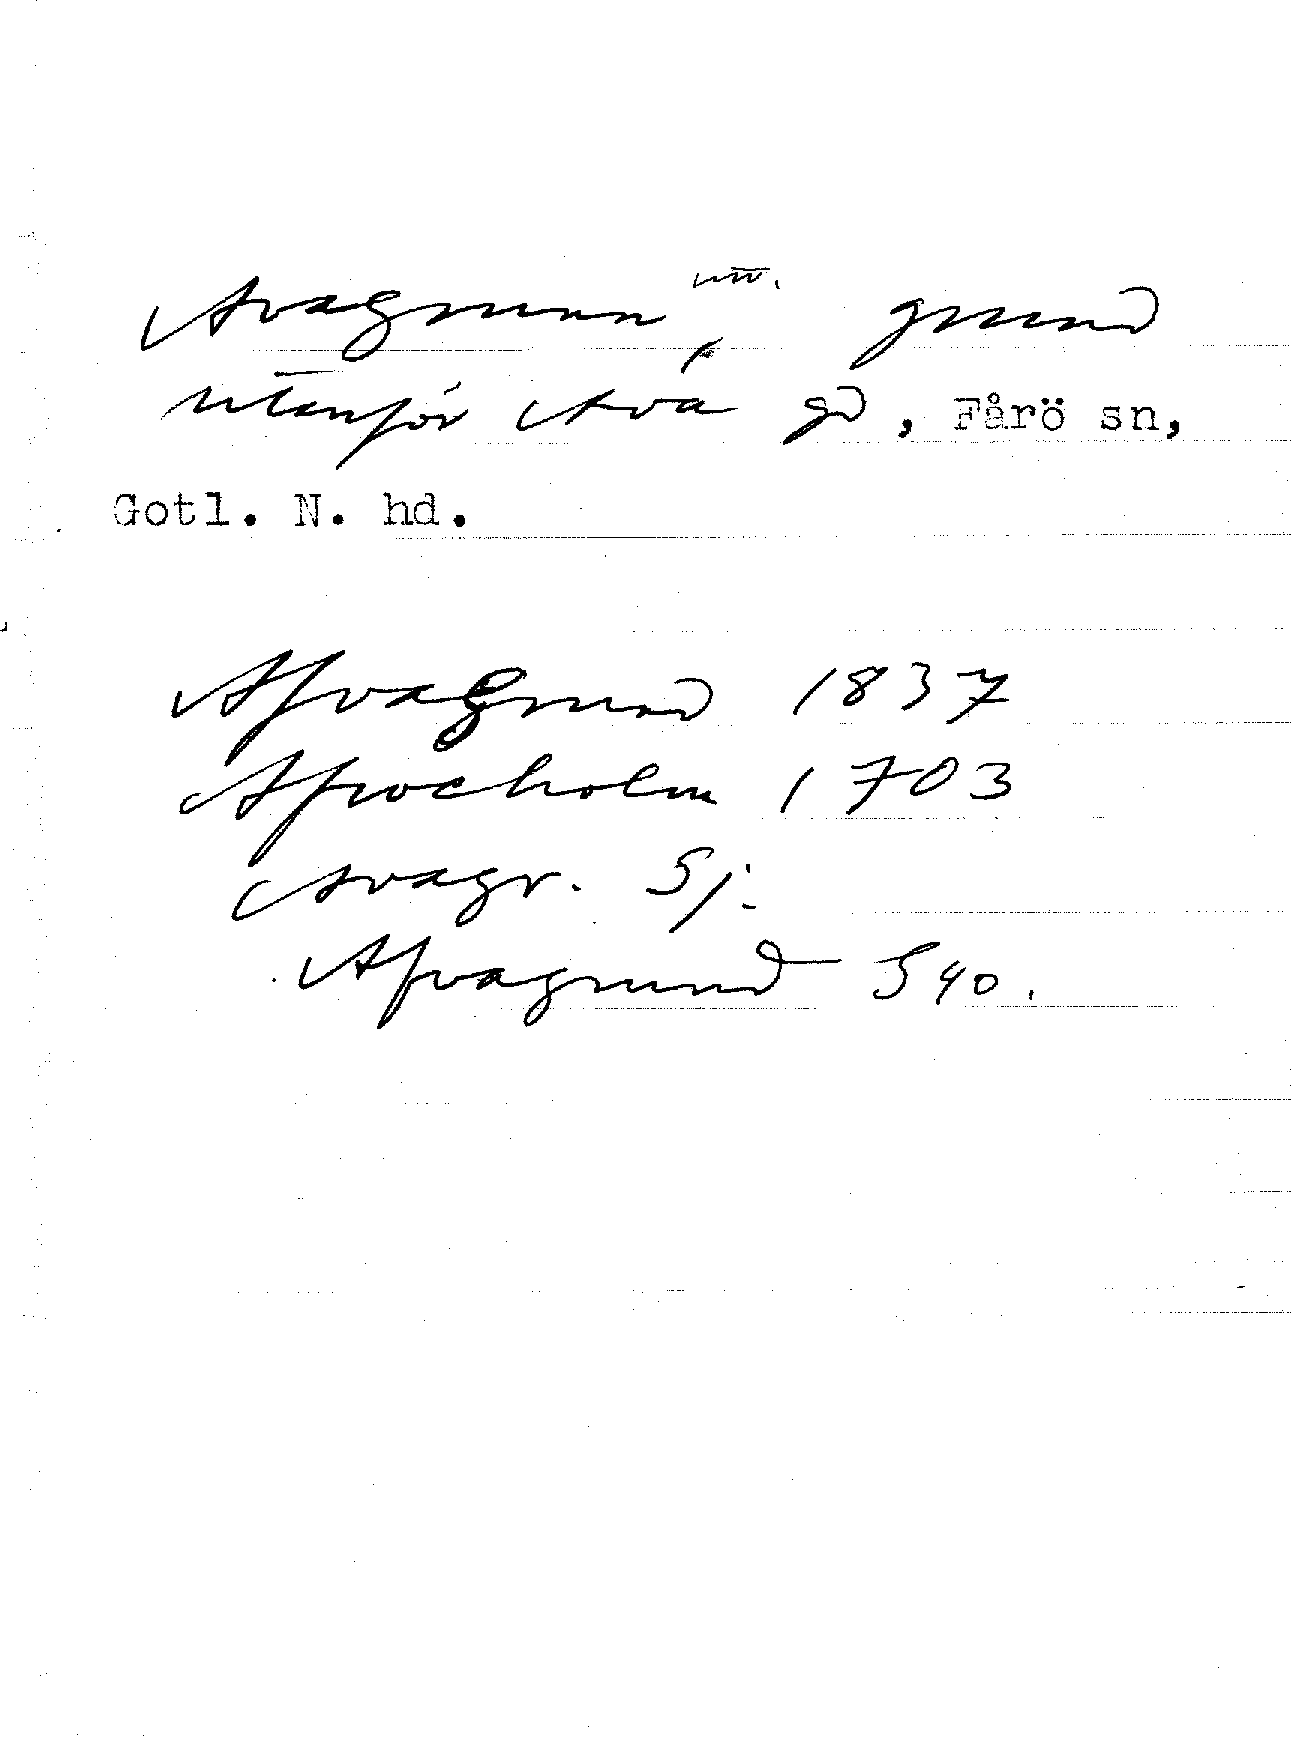 Avagrunn, grund
utanför Ava gd, Fårö sn,
Gotl. N. hd.
Afvagrund 1837
Afwocholm 1703
Avagr. Sj.
Afvagrund S 40.